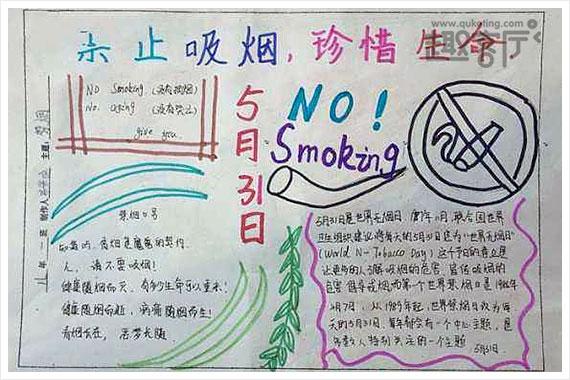 www.quketing.com
趣客厅
杀止吸烟，珍惜生命
NO Smoking (没有抽烟)
No. using (没有哭泣)
give you.
主题：劳烟
制作人
年一班
5月31日
NO!
Smoking
禁烟口号
香烟是魔鬼的契约
人，请不要吸烟！
健康随烟而灭，有多少生命可以重来！
健康随烟而逝，病痛随烟而生！
香烟在，恶梦长随
5月31日是世界无烟日 1987年11月，联合国世
界卫生组织建议将每年的5月31日定为“世界无烟日”
(World N-Tobacco Day) 这个节日的意义是
让更多的人了解吸烟的危害，宣传吸烟的
危害 但是戒烟而第一个世界禁烟日是1988年
4月7日，从1989年起，世界禁烟日改为每
年的5月31日，每年都会有一个中心主题，是
年数人特别关注的一个主题
5月31日.